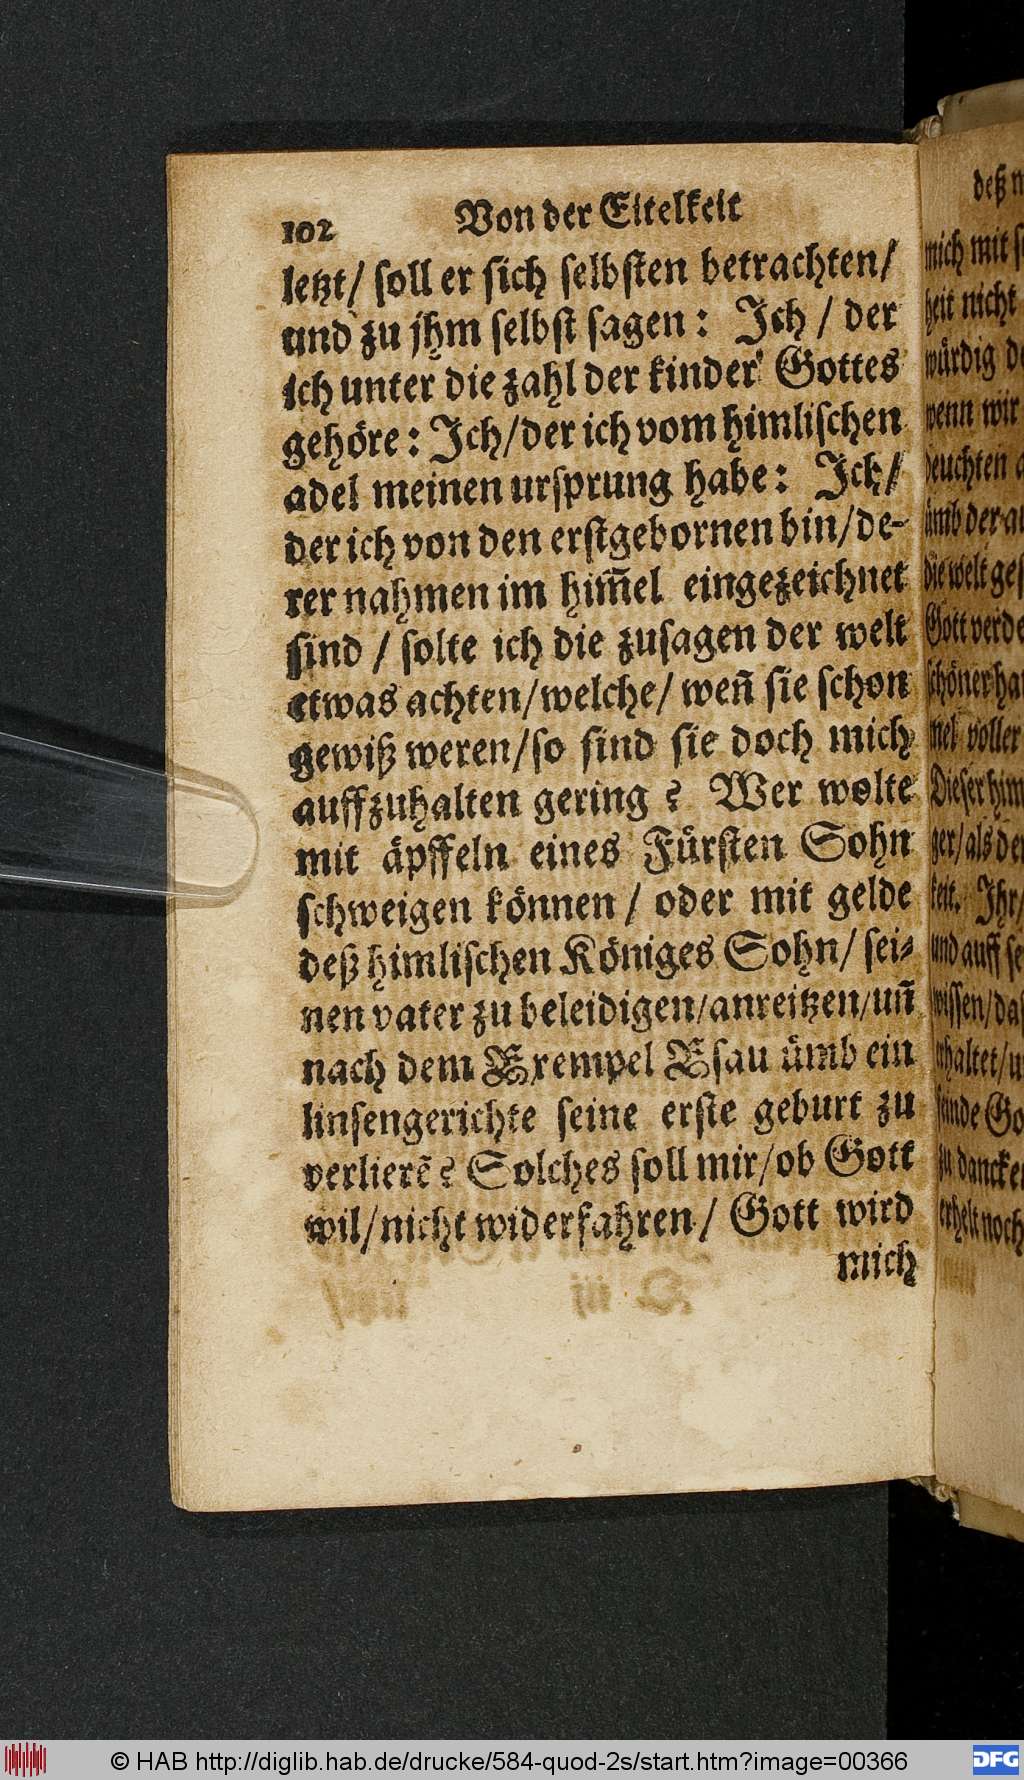 102 Von der Eitelkeit
letzt/ soll er sich selbsten betrachten/
und zu jhm selbst sagen: Ich / der
ich unter die zahl der kinder Gottes
gehöre: Ich/der ich vom himlischen
adel meinen ursprung habe: Ich/
der ich von den erstgebornen bin/de-
rer nahmen im him̃el eingezeichnet
sind / solte ich die zusagen der welt
etwas achten/welche/ weñ sie schon
gewiß weren/so sind sie doch mich
auffzuhalten gering? Wer wolte
mit äpffeln eines Fürsten Sohn
schweigen können / oder mit gelde
deß himlischen Königes Sohn/ sei-
nen vater zu beleidigen/anreitzen/uñ
nach dem Exempel Esau ümb ein
linsengerichte seine erste geburt zu
verlierẽ? Solches soll mir/ob Gott
wil/nicht widerfahren/ Gott wird
mich
deß
mich mit
heit nicht
würdig
wenn wir
deuchten
ümb der
die welt
Gott
schöner
voller
Dieser
ger/als
keit. Ihr/
und auff
wissen/
haltet/
Go
zu dancken
erhelt noch
© HAB http://diglib.hab.de/drucke/584-quod-2s/start.htm?image=00366
DFG